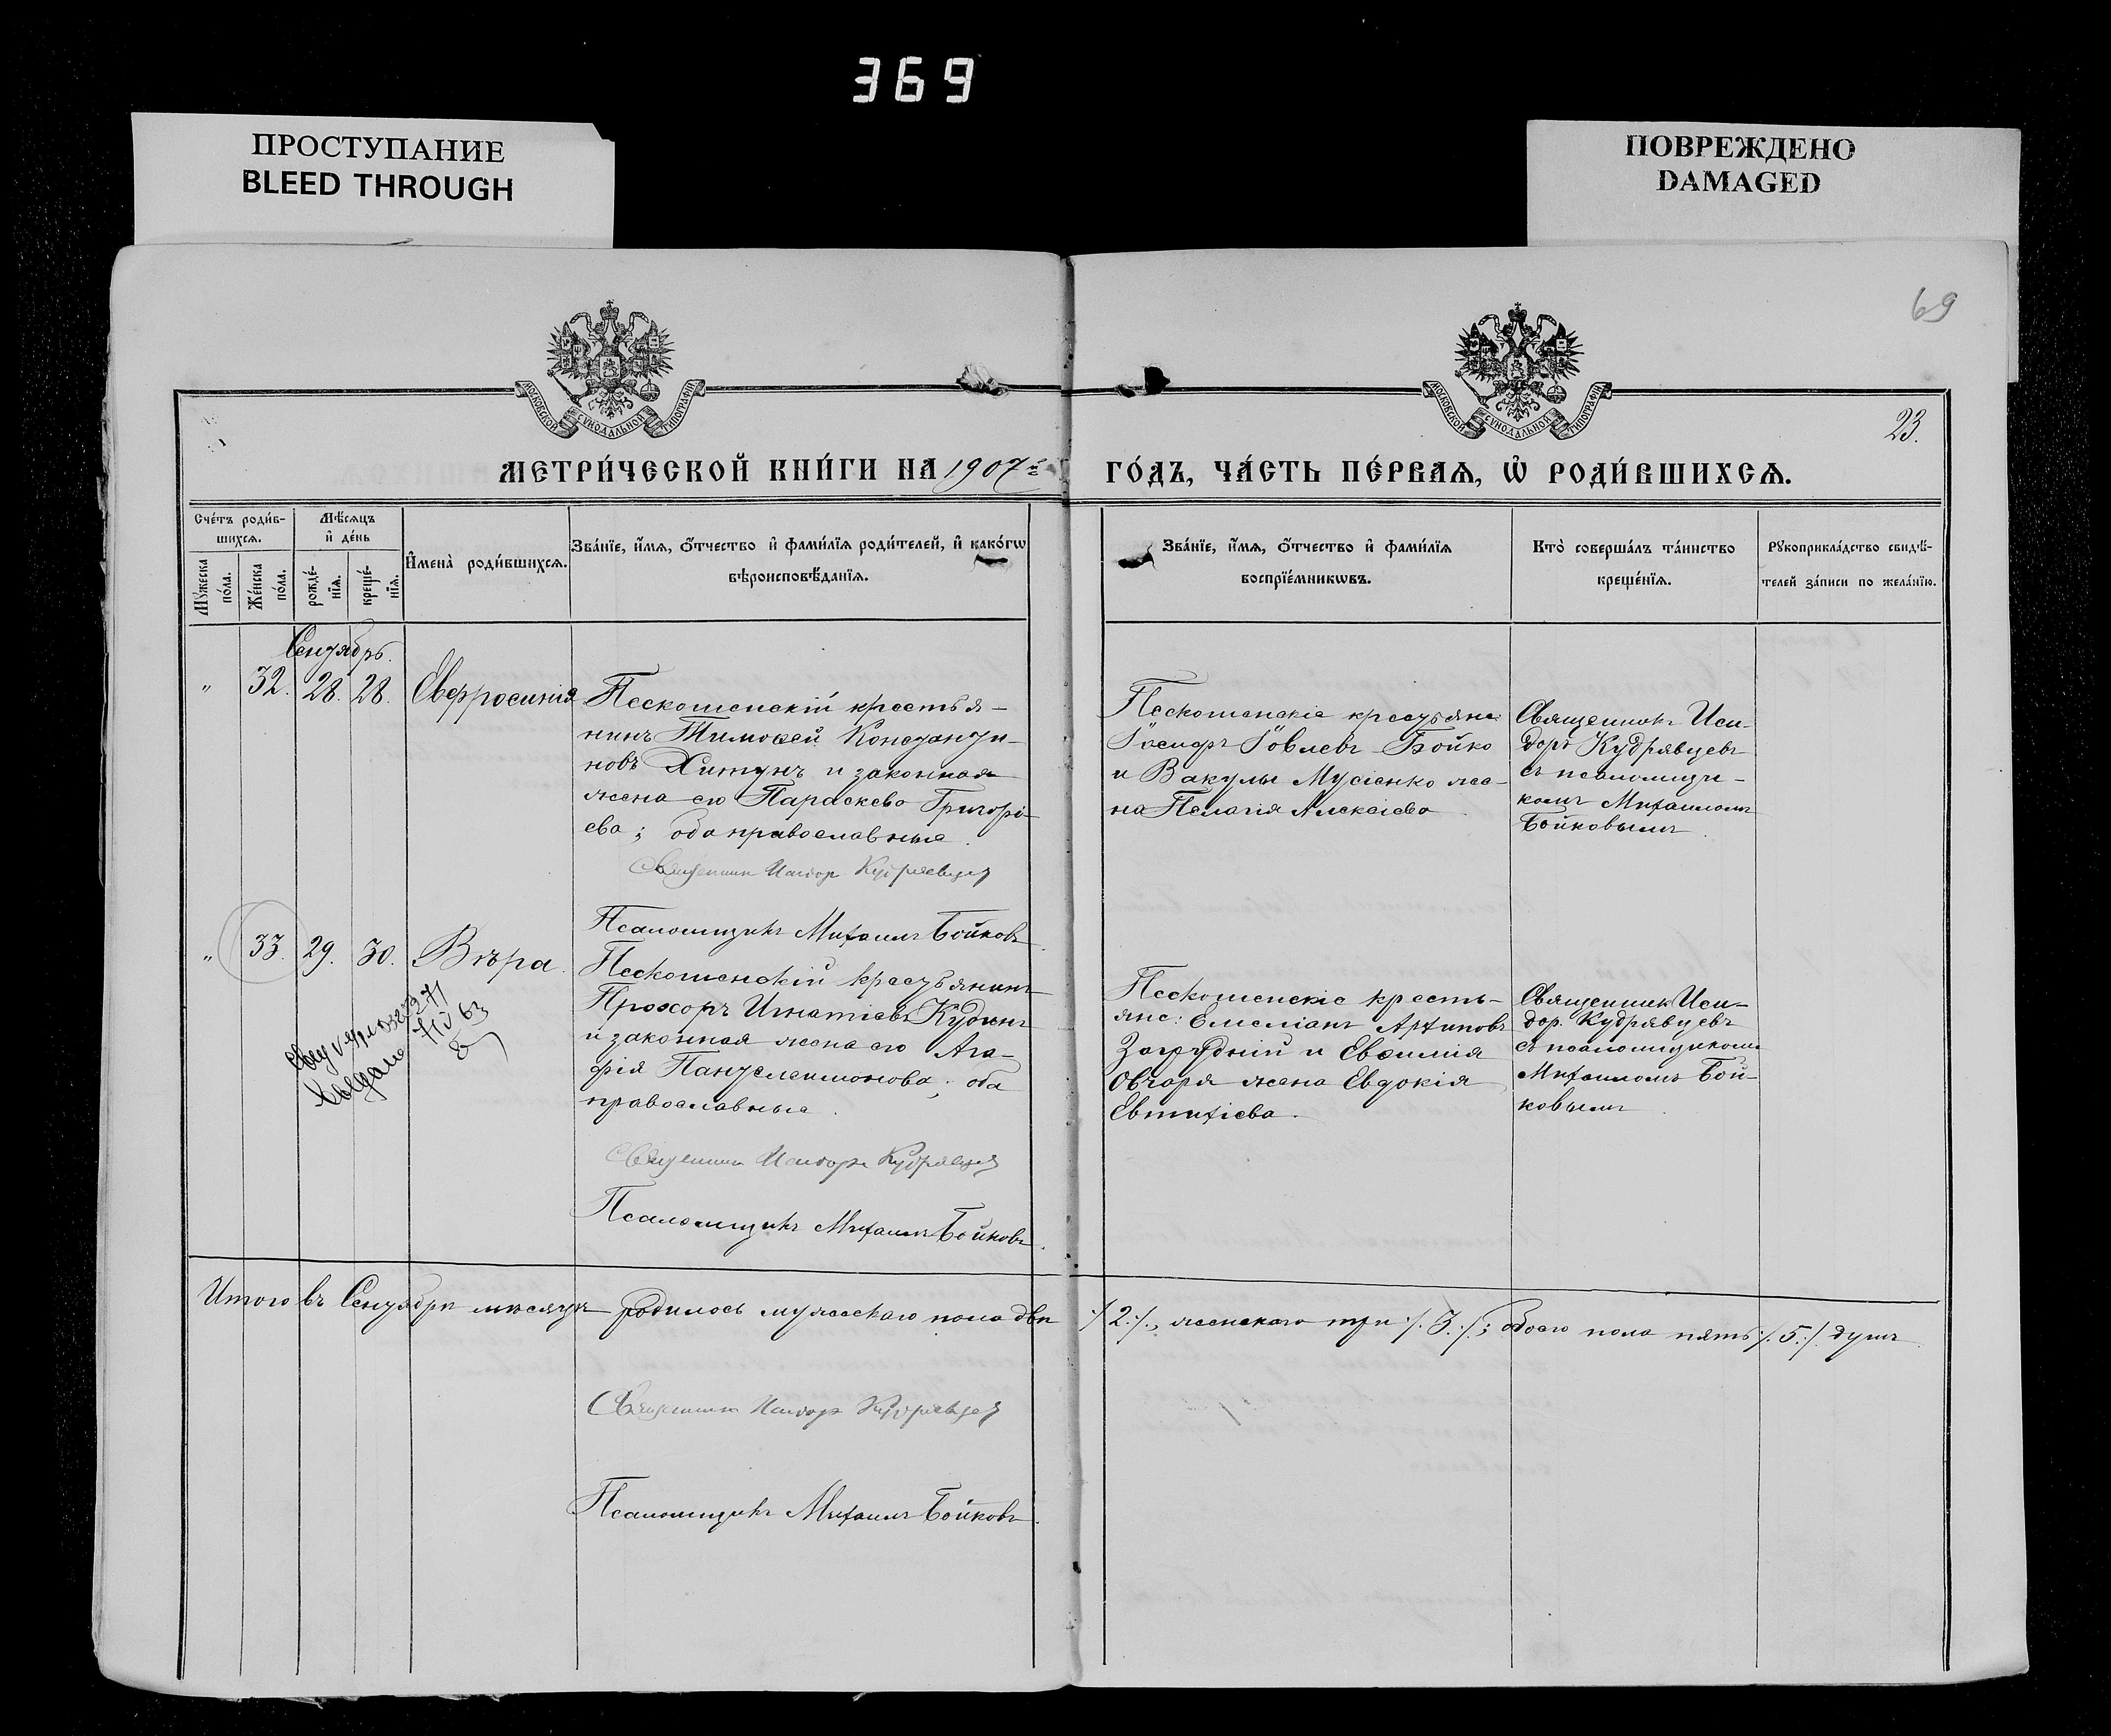 369
ПРОСТУПАНИЕ
BLEED THROUGH
ПОВРЕЖДЕНО
DAMAGED
69
МОСКОВСКОЙ СѴНОДАЛЬНОЙ ТИПОГРАФІИ
МОСКОВСКОЙ СѴНОДАЛЬНОЙ ТИПОГРАФІИ
23.
МЕТРИ́ЧЕСКОЙ КНИ́ГИ НА 1907 й
ГО́ДЪ, ЧА́СТЬ ПЕ́РВАѦ, Ѡ҆ РОДИ́ВШИХСѦ.
Сче́тъ роди́в-
шихсѧ.
Мꙋ́жеска
по́ла.
Же́нска
по́ла.
Мѣ́сѧцъ
и҆ де́нь
рожде́-
нїѧ.
креще́-
нїѧ.
И҆мена̀ роди́вшихсѧ.
Зва́нїе, и҆́мѧ, ѻ҆́тчество и҆ фами́лїѧ роди́телей, и҆ како́гѡ
вѣроисповѣ́данїѧ.
Зва́нїе, и҆́мѧ, ѻ҆́тчество и҆ фами́лїѧ
воспрїе́мникѡвъ.
Кто̀ соверша́лъ та́инство
креще́нїѧ.
Рꙋкоприкла́дство свидѣ́-
телей за́писи по жела́нїю.
Сентябрь.
„ 32. 28. 28. Евфросинія
Пескошенскій крестья-
нинъ Тимоѳей Константи-
новъ Хитунъ и законная
жена его Параскева Григорі-
ева; оба православные.
Священник Исидор Кудрявцев
Псаломщикъ Михаилъ Бойковъ.
Пескошенскіе крестьяне
Іосифъ Іовлевъ Бойко
и Вакулы Мусіенко же-
на Пелагія Алексіева.
Священникъ Иси-
доръ Кудрявцевъ
съ псаломщи-
комъ Михаиломъ
Бойковымъ
„ 33. 29. 30. Вѣра.
Пескошенскій крестьянинъ
Прохоръ Игнатіевъ Кудинъ
и законная жена его Ага-
фія Пантелеимонова; оба
православные.
Священник Исидоръ Кудрявцев
Псаломщикъ Михаилъ Бойковъ.
Пескошенскіе кресть-
яне: Емеліанъ Архиповъ
Загрудній и Евѳимія
Овчаря жена Евдокія
Евтихіева.
Священник Иси-
дор. Кудрявцевъ
съ псаломщикомъ
Михаиломъ Бой-
ковымъ.
Итого въ Сентябрѣ мѣсяцѣ родилось мужескаго пола два ./.2./., женскаго три ./.3./.; обоего пола пять ./.5./. душъ.
Священник Исидор Кудрявцев
Псаломщикъ Михаилъ Бойковъ.